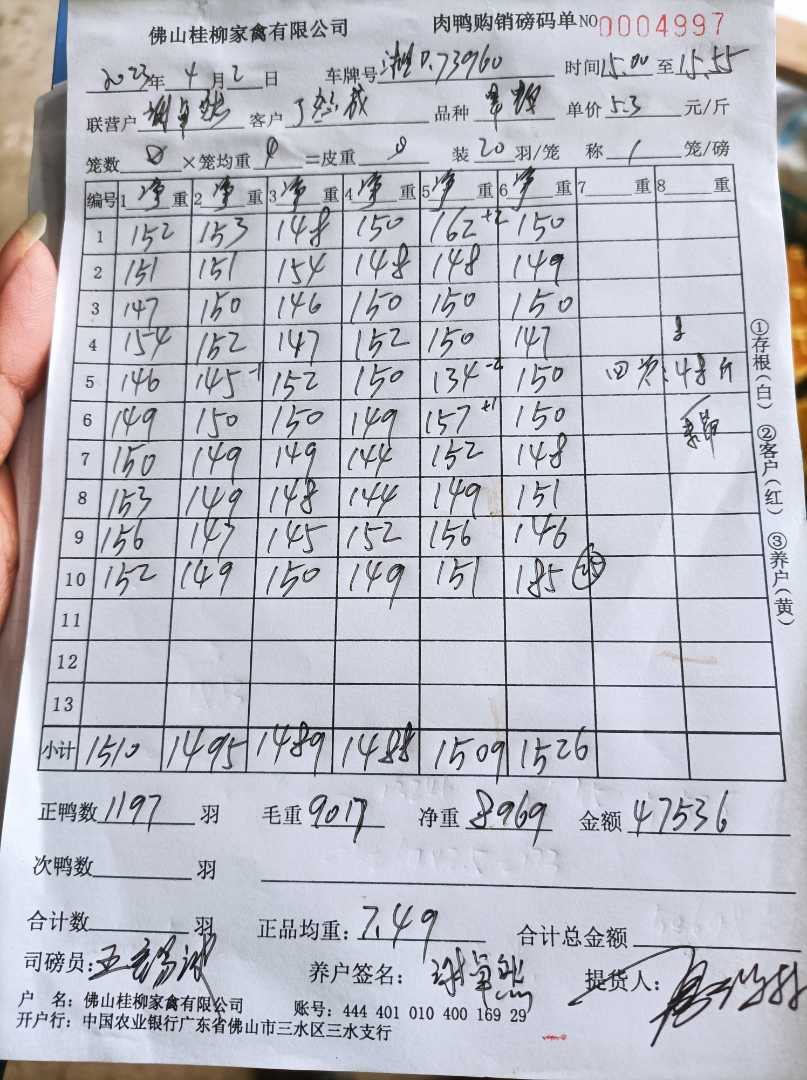 佛山桂柳家禽有限公司 肉鸭购销磅码单NO 0004997
2023年 4月 2日 车牌号 湘D.73960 时间 15.00 至 15.55
联营户 谢草然 客户 品种 单价 5.3 元/斤
笼数 0 ×笼均重 0 =皮重 0 装 20 羽/笼 称 1 笼/磅
编号 1 净 重 2 净 重 3 净 重 4 净 重 5 净 重 6 净 重 7 重 8 重
1 152 153 148 150 162+2 150
2 151 151 154 148 148 149
3 147 150 146 150 150 150
4 154 152 147 152 150 147
5 146 145-1 152 150 134-2 150 :48斤
6 149 150 150 149 157+1 150
7 150 149 149 144 152 148
8 153 149 148 144 149 151
9 156 147 145 152 156 146
10 152 149 150 149 151 185 25
11
12
13
小计 1510 1495 1489 1488 1509 1526
①存根(白) ②客户(红) ③养户(黄)
正鸭数 1197 羽 毛重 9017 净重 8969 金额 47536
次鸭数 羽
合计数 羽 正品均重: 7.49 合计总金额
司磅员: 养户签名: 提货人:
户 名: 佛山桂柳家禽有限公司 账号: 444 401 010 400 169 29
开户行: 中国农业银行广东省佛山市三水区三水支行